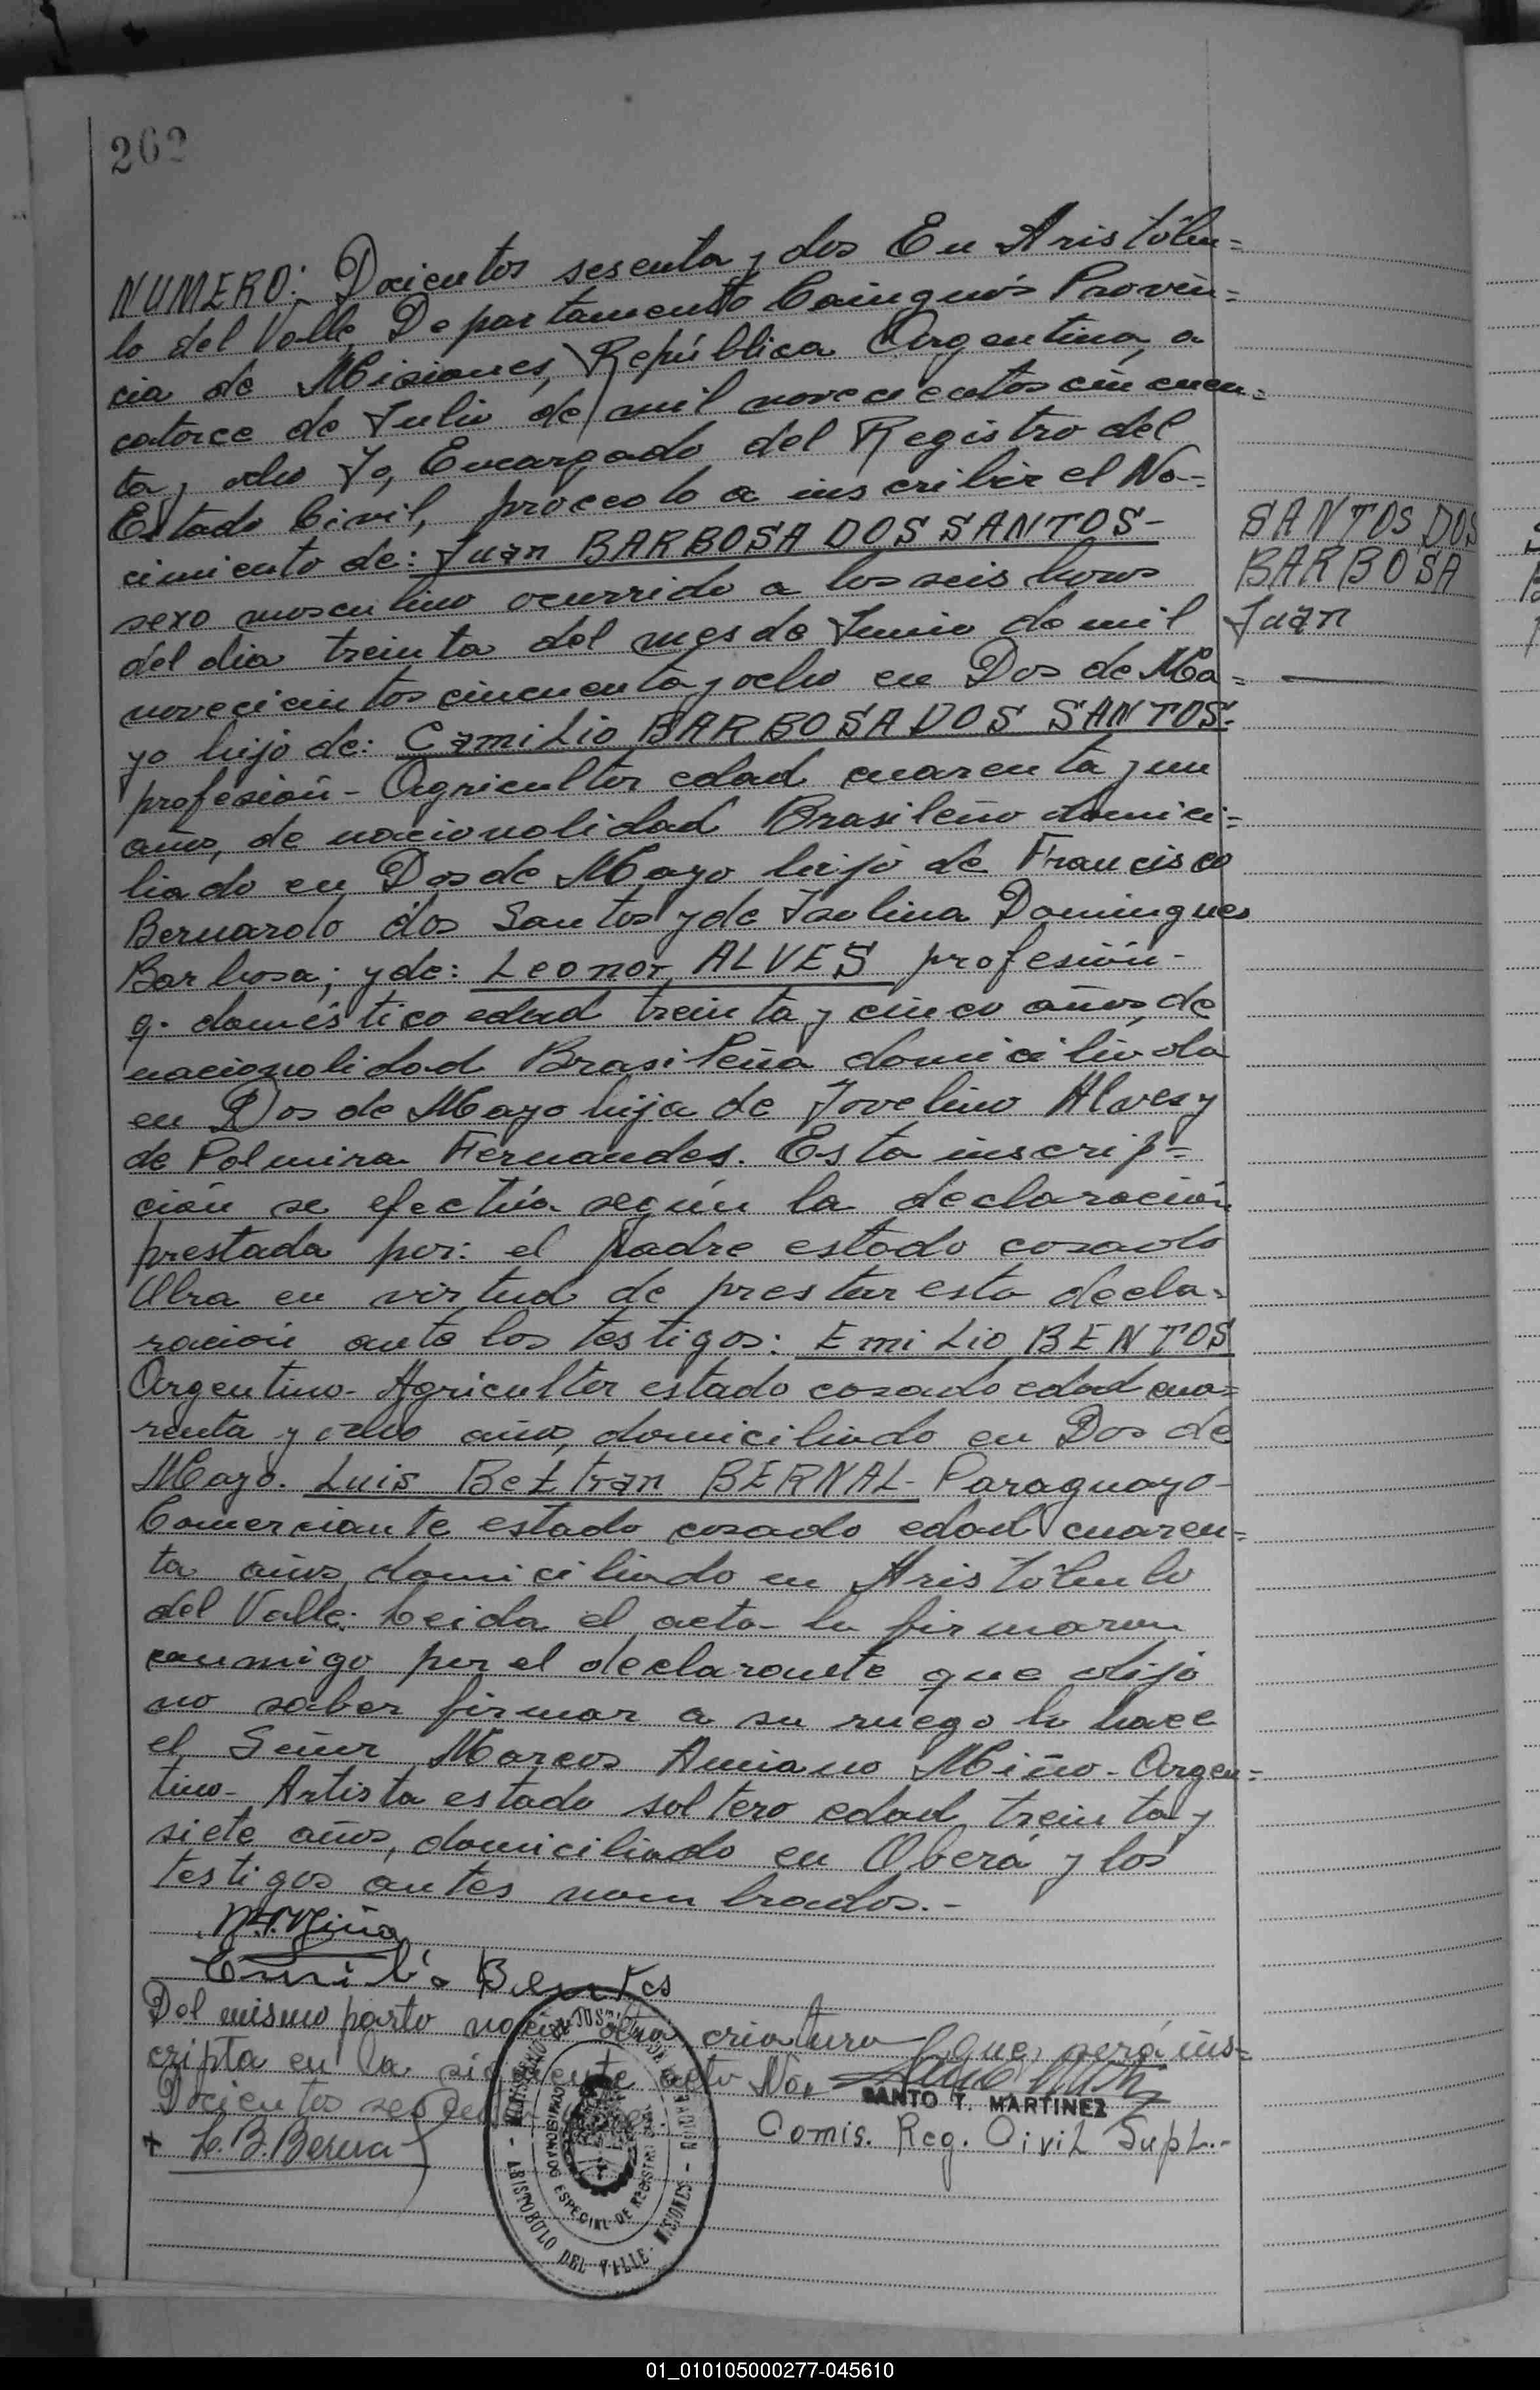 262
NUMERO: Docientos sesenta y dos En Aristóbu=
lo del Valle, Departamento Cainguás Provin=
cia de Misiones, República Argentina, a
catorce de Julio de mil novecientos cincuen=
ta y ocho Yo, Encargado del Registro del
Estado Civil, procedo a inscribir el Na-=
cimiento de: Juan BARBOSA DOS SANTOS-
sexo masculino ocurrido a las seis horas
del dia treinta del mes de Junio de mil
novecientos cincuenta y ocho en Dos de Ma=
yo hijo de: Camilio BARBOSA DOS SANTOS.
profesión - Agricultor edad cuarenta y un
años, de nacionalidad Brasileño domici=
liado en Dos de Mayo hijo de Francisco
Bernardo dos Santos y de Domingues
Barbosa; y de: Leonor ALVES profesión-
q. doméstico edad treinta y cinco años, de
nacionalidad Brasileña domiciliada
en Dos de Mayo hija de Jovelino Alves y
de Polmira Fernandes. Esta inscrip=
ción se efectúa según la declaración
prestada por: el padre estado casado
Obra en virtud de prestar esta decla-
ración ante los testigos: Emilio BENTOS
Argentino- Agricultor estado casado edad cua=
renta y ocho años, domiciliado en Dos de
Mayo. Luis Beltran BERNAL- Paraguayo-
Comerciante estado casado edad cuaren=
ta años domiciliado en Aristóbulo
del Valle: Leida el acta la firmaron
conmigo por el declarante que dijo
no saber firmar a su ruego lo hace
el Señor Marcos Amiano Miño- Argen=
tino- Artista estado soltero edad treinta y
siete años, domiciliado en Oberá y los
testigos antes nombrados.-
SANTOS DOS
BARBOSA
Juan
Miño
Emilio Bentos
Del mismo parto nació otra criatura que será ins=
cripta en la siguiente acta No.
Docientos
+ L. B. Bernal
SANTO T. MARTINEZ
Comis. Reg. Civil Supl.-
ARISTOBULO DEL VALLE - MISIONES
ESPECIAL DE REGISTRO CIVIL
01_010105000277-045610